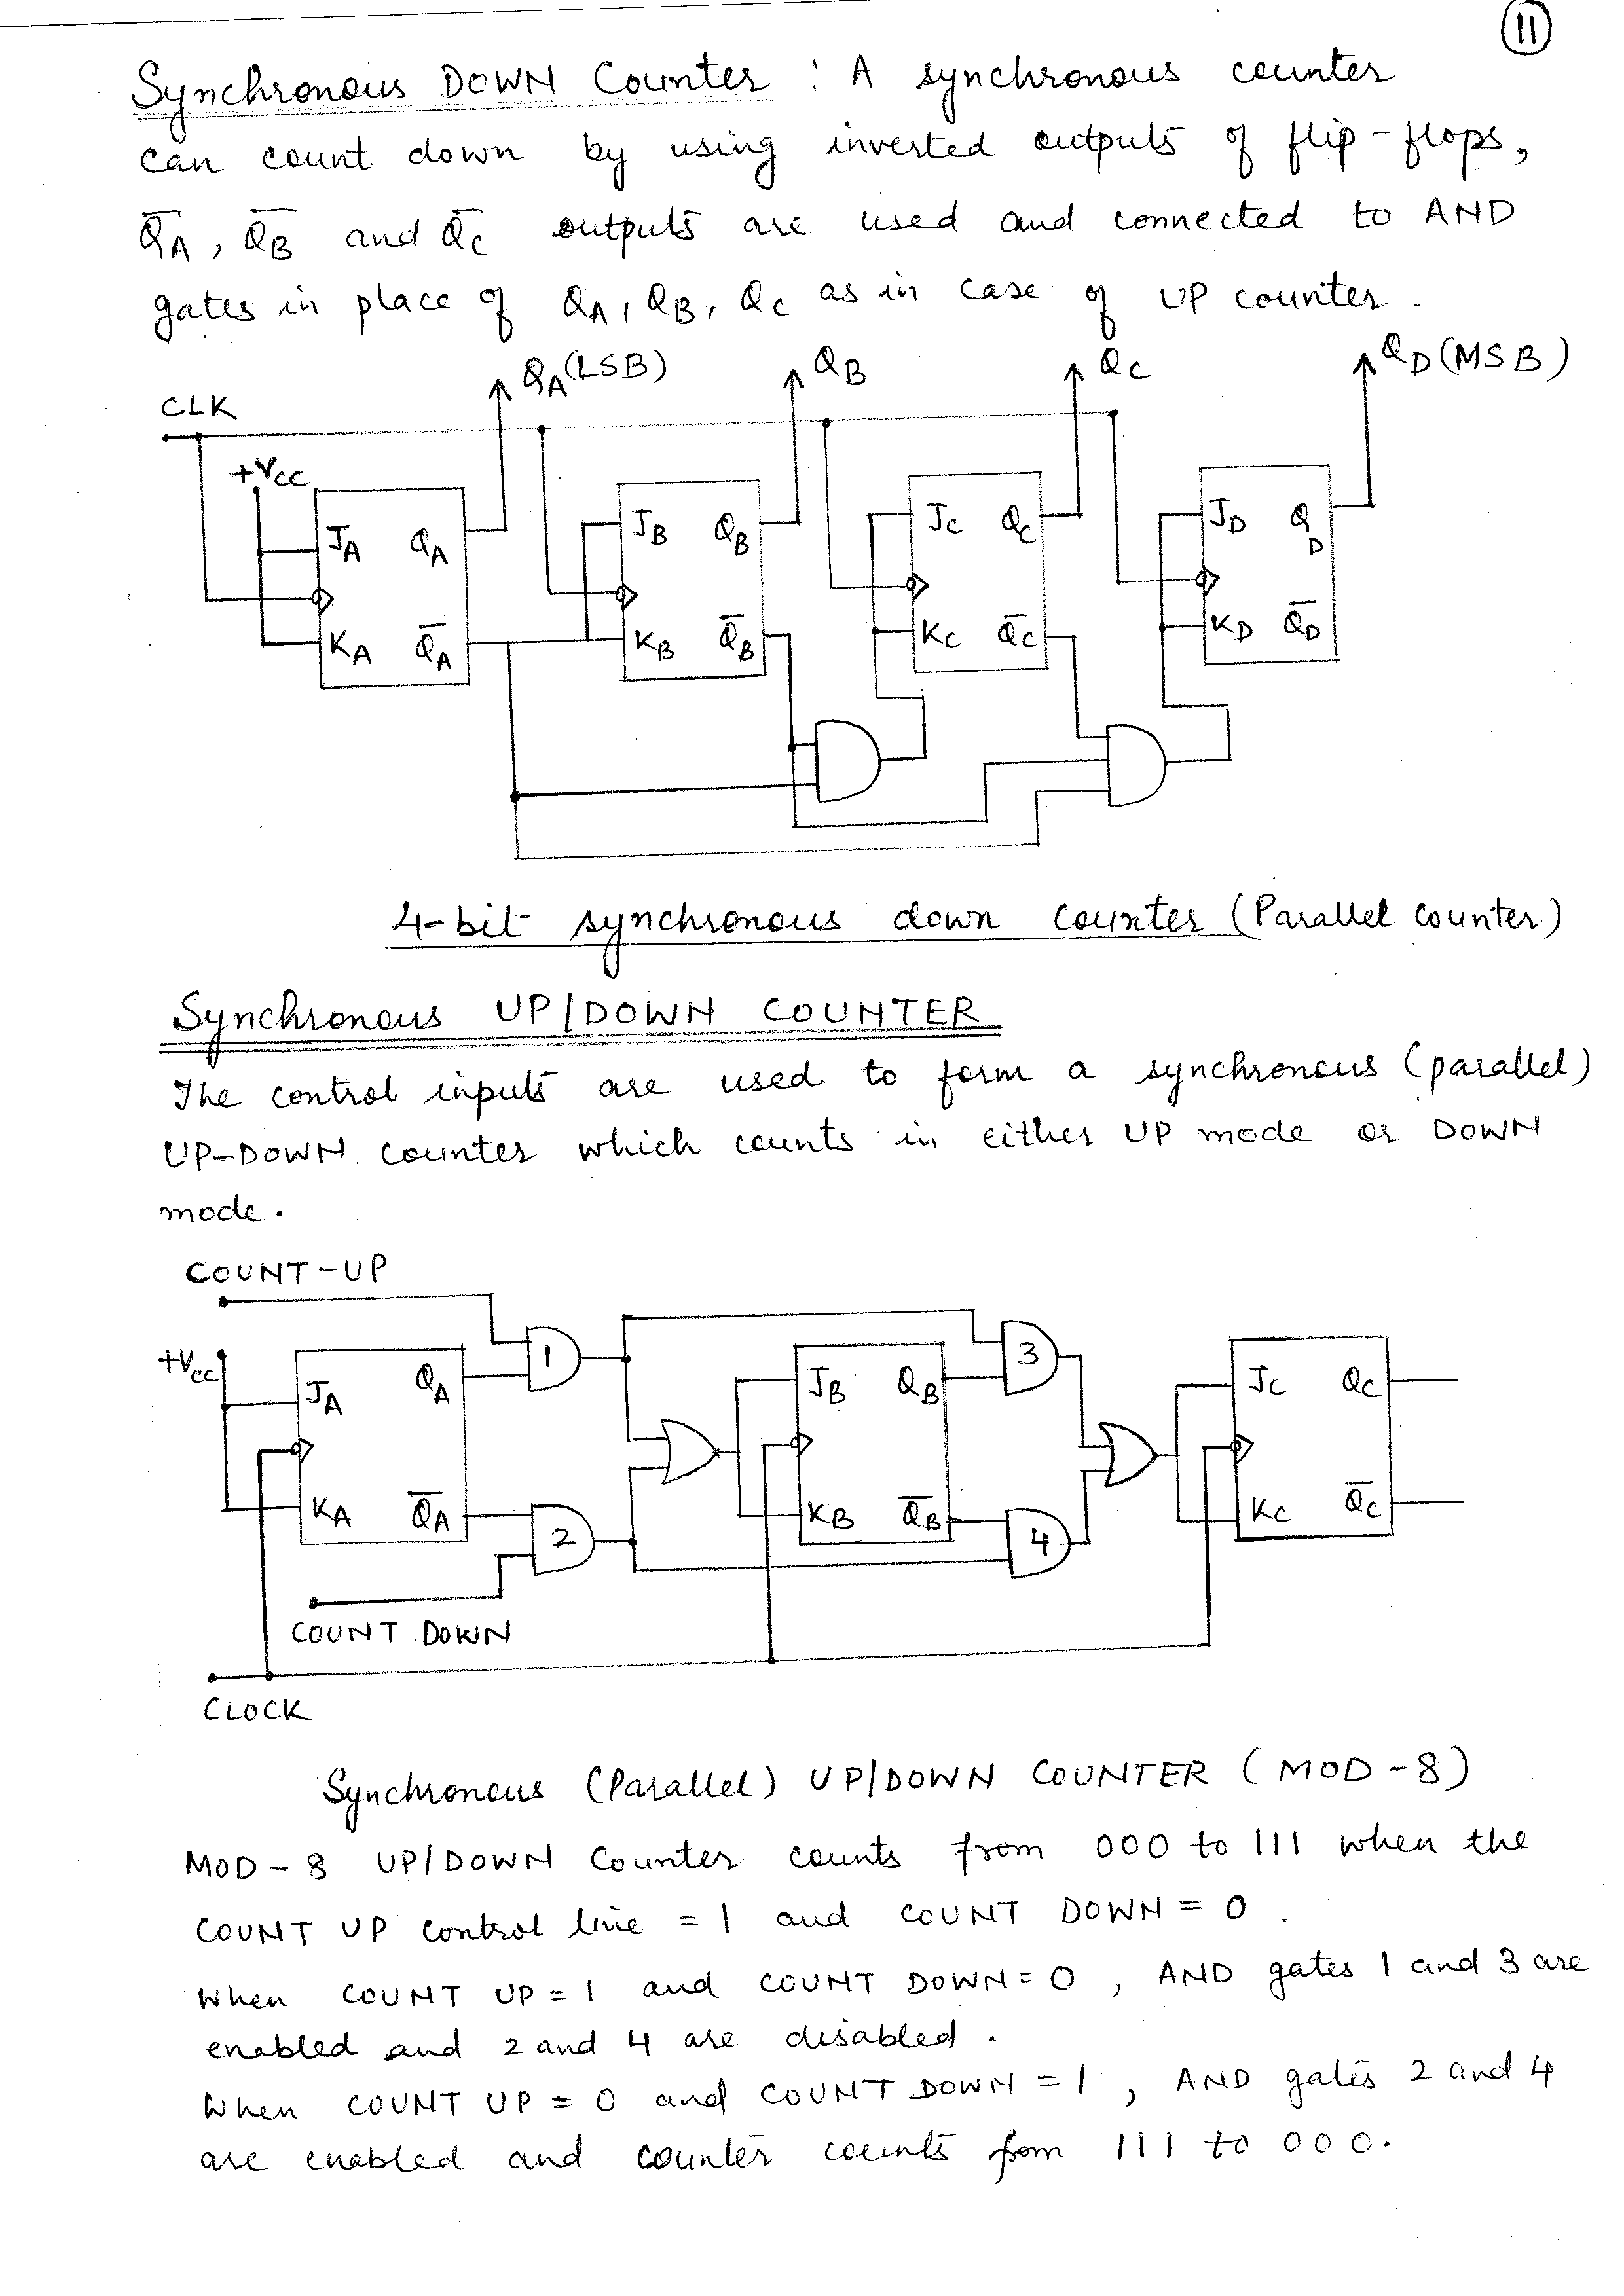 11
Synchronous DOWN Counter : A synchronous counter
can count down by using inverted outputs of flip-flops,
Q̅A, Q̅B and Q̅C outputs are used and connected to AND
gates in place of QA, QB, QC as in case of UP counter.
QA(LSB) QB QC QD(MSB)
CLK
+VCC
JA QA JB QB JC QC JD QD
KA Q̅A KB Q̅B KC Q̅C KD Q̅D
4-bit synchronous down counter (Parallel Counter)
Synchronous UP/DOWN COUNTER
The control inputs are used to form a synchronous (parallel)
UP-DOWN counter which counts in either UP mode or DOWN
mode.
COUNT-UP
+VCC
1 3
JA QA JB QB JC QC
KA Q̅A KB Q̅B KC Q̅C
2 4
COUNT DOWN
CLOCK
Synchronous (Parallel) UP/DOWN COUNTER (MOD-8)
MOD-8 UP/DOWN Counter counts from 000 to 111 when the
COUNT UP control line = 1 and COUNT DOWN = 0.
When COUNT UP = 1 and COUNT DOWN = 0, AND gates 1 and 3 are
enabled and 2 and 4 are disabled.
When COUNT UP = 0 and COUNT DOWN = 1, AND gates 2 and 4
are enabled and counter counts from 111 to 000.